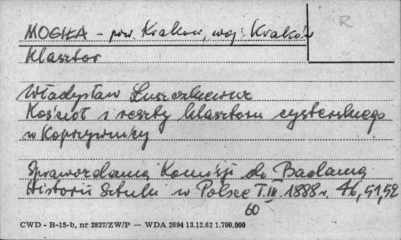 R
MOGIŁA - pow. Kraków, woj. Kraków
Klasztor
Władysław Łuszczkiewicz
Kościół i reszty klasztoru cysterskiego
w Koprzywnicy
Sprawozdania Komisji do Badania
Historii Sztuki w Polsce T.III 1888 r. 46, 51, 52
60
CWD - B-15-b, nr 2827/ZW/P — WDA 2694 13.12.62 1.700.000